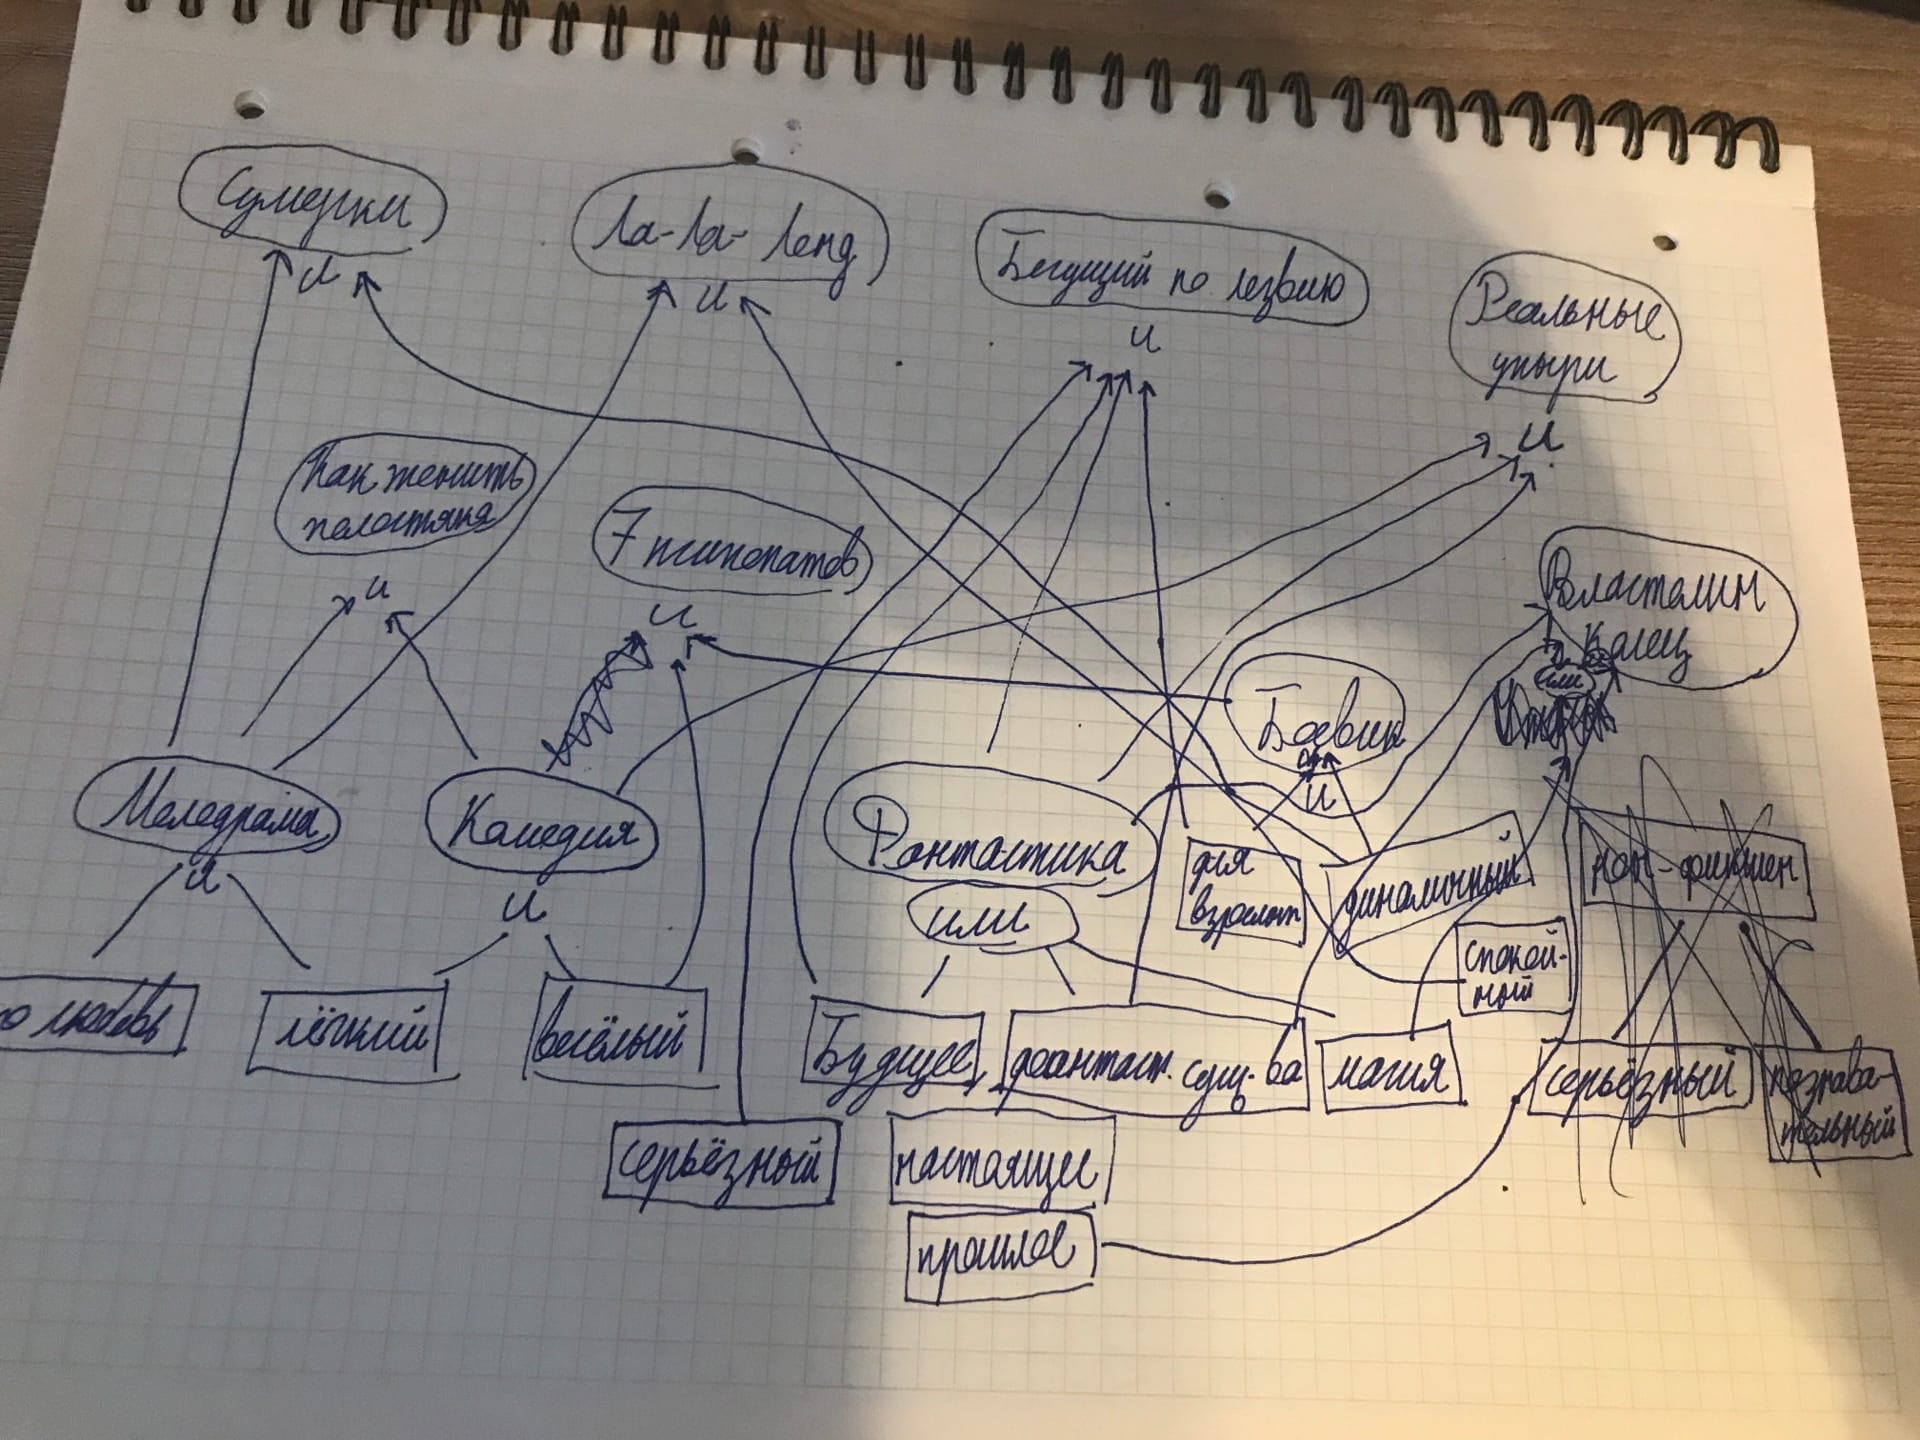 Сумерки
и
Ла-Ла-Ленд
и
Бегущий по лезвию
и
Реальные
упыри
и
Как женить
холостяка
и
7 психопатов
и
Властелин
Колец
или
Боевик
и
Мелодрама
и
Комедия
и
Фантастика
или
для
взрослых
динамичный
нон-фикшен
спокой-
ный
о любовь
лёгкий
весёлый
Будущее
фантаст. сущ-ва
магия
серьёзный
познава-
тельный
серьёзный
настоящее
прошлое